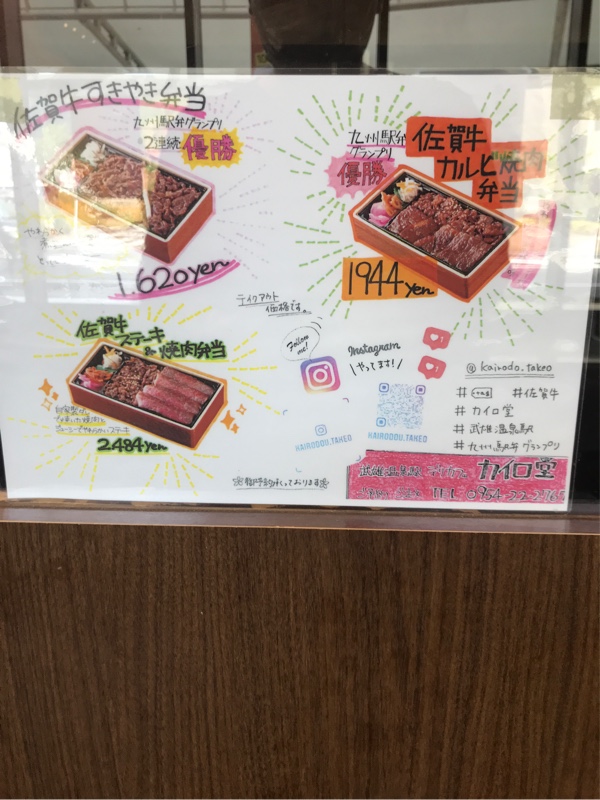 佐賀牛すきやき弁当
九州駅弁グランプリ
2連続 優勝
1,620yen
九州駅弁
グランプリ
優勝
佐賀牛
カルビ焼肉
弁当
1944yen
テイクアウト
価格です。
佐賀牛
ステーキ
& 焼肉弁当
2,484yen
Follow
me!
Instagram
やってます!
KAIRODOU.TAKEO
KAIRODOU.TAKEO
@kairodo.takeo
#佐賀牛
#カイロ堂
#武雄温泉駅
#九州駅弁グランプリ
武雄温泉駅 カイロ堂
TEL